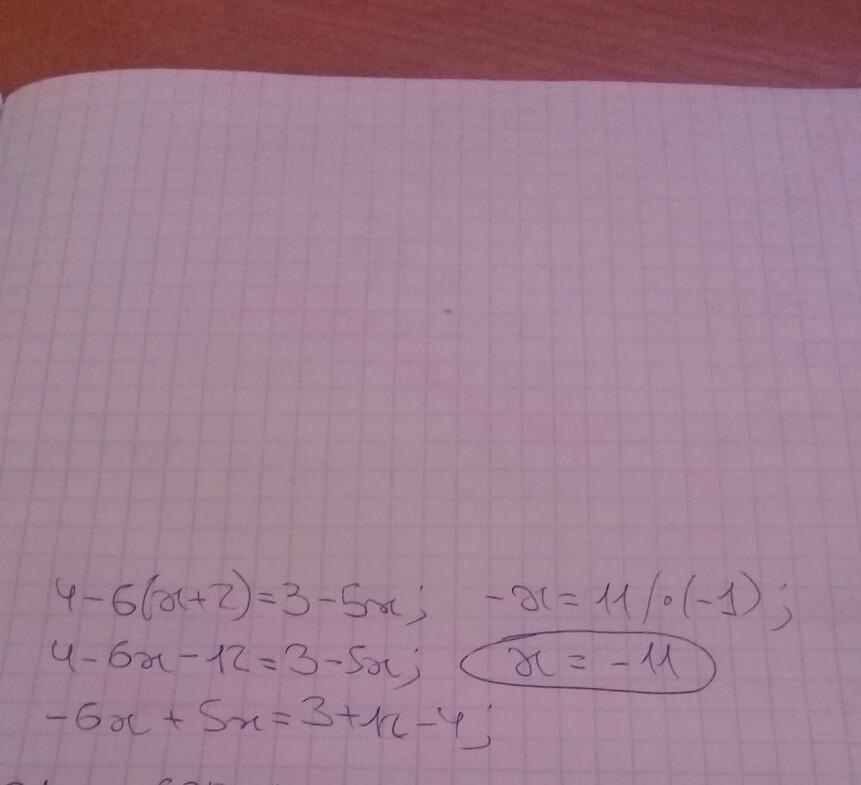 4-6(x+2)=3-5x;
4-6x-12=3-5x;
-6x+5x=3+12-4;
-x=11/·(-1);
x=-11